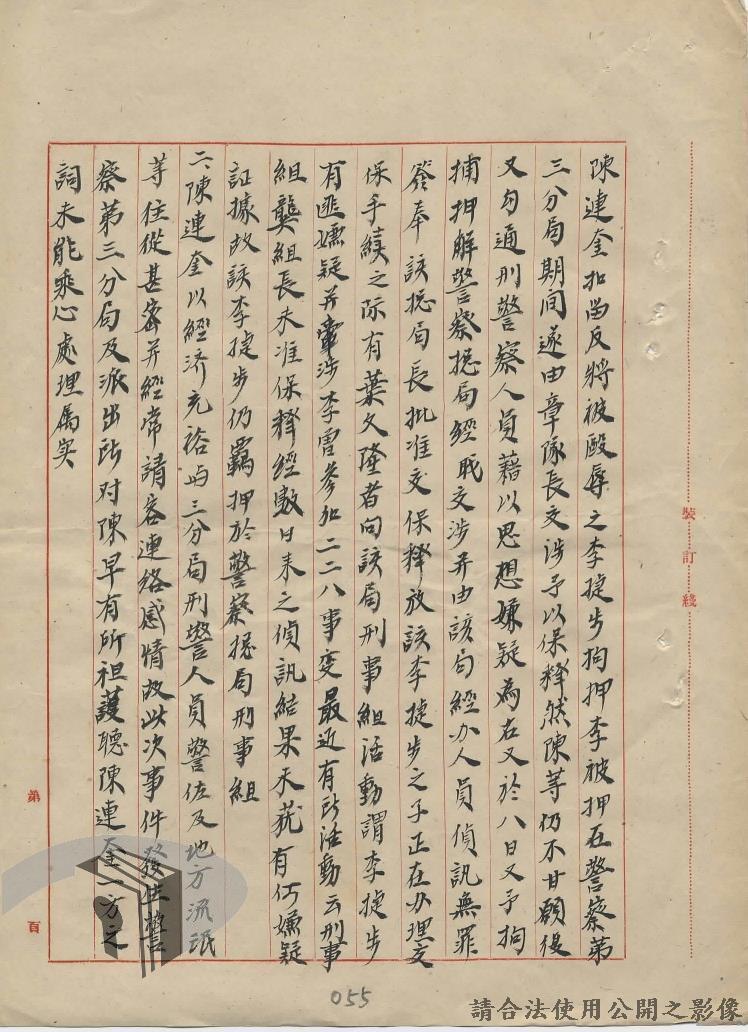 陳連奎扣留反將被毆辱之李捷步拘押李被押在警察第
三分局期間遂由章隊長交涉予以保釋然陳等仍不甘願復
又勾通刑警察人員藉以思想嫌疑為名又於八日又予拘
捕押解警察總局經職交涉并由該局經办人員偵訊無罪
簽奉該總局長批准交保釋放該李捷步之子正在办理交
保手續之际有葉文隆者向該局刑事組活動謂李捷步
有匪嫌疑并牽涉李曾參加二二八事变最近有所活動云刑事
組龔組長未准保釋經數日來之偵訊結果未获有何嫌疑
証據故該李捷步仍羈押於警察總局刑事組
二、陳連奎以經济充裕與三分局刑警人員警佐及地方流氓
等往從甚密并經常請客連絡感情故此次事件發生警
察第三分局及派出所对陳早有所袒護聽陳連奎一方之
詞未能秉心處理属实
裝訂綫
第 頁
055
請合法使用公開之影像